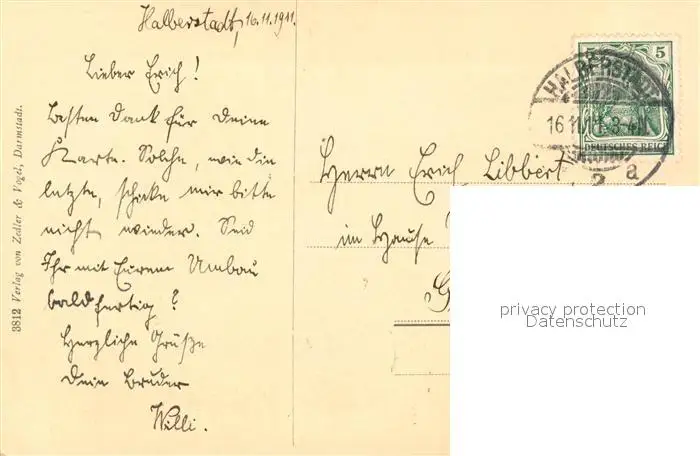 Halberstadt, 16.11.1911.
Lieber Erich!
Besten Dank für Deine
Karte. Solche, wie die
letzte, schicke mir bitte
nicht wieder. Seid
Ihr mit Eurem Umbau
bald fertig?
Herzliche Grüße
Dein Bruder
Willi.
3812 Verlag von Zedler & Vogel, Darmstadt.
5 5
DEUTSCHES REICH
HALBERSTADT
16.11.11. 3-4N.
2 a
Herrn Erich Libbert,
im Hause
privacy protection
Datenschutz